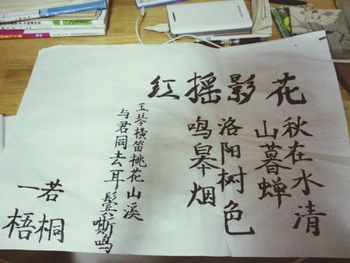 花影摇红
秋在水清
山暮蝉
洛阳树色
鸣皋烟
玉琴横笛桃花山溪
与君同去耳鬓嘶鸣
一若
梧桐